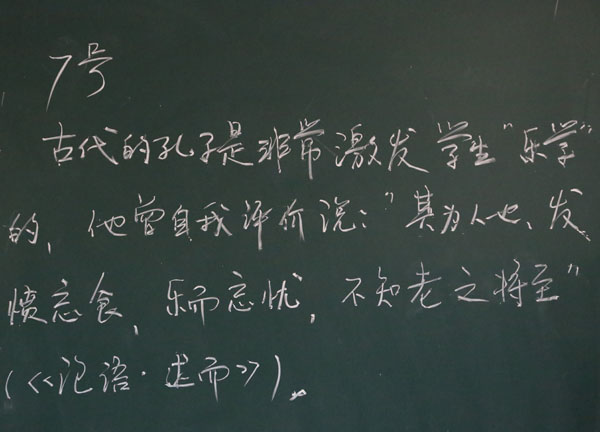 7号
古代的孔子是非常激发学生"乐学"
的,他曾自我评价说:"其为人也、发
愤忘食,乐而忘忧,不知老之将至"
(《论语·述而》)。